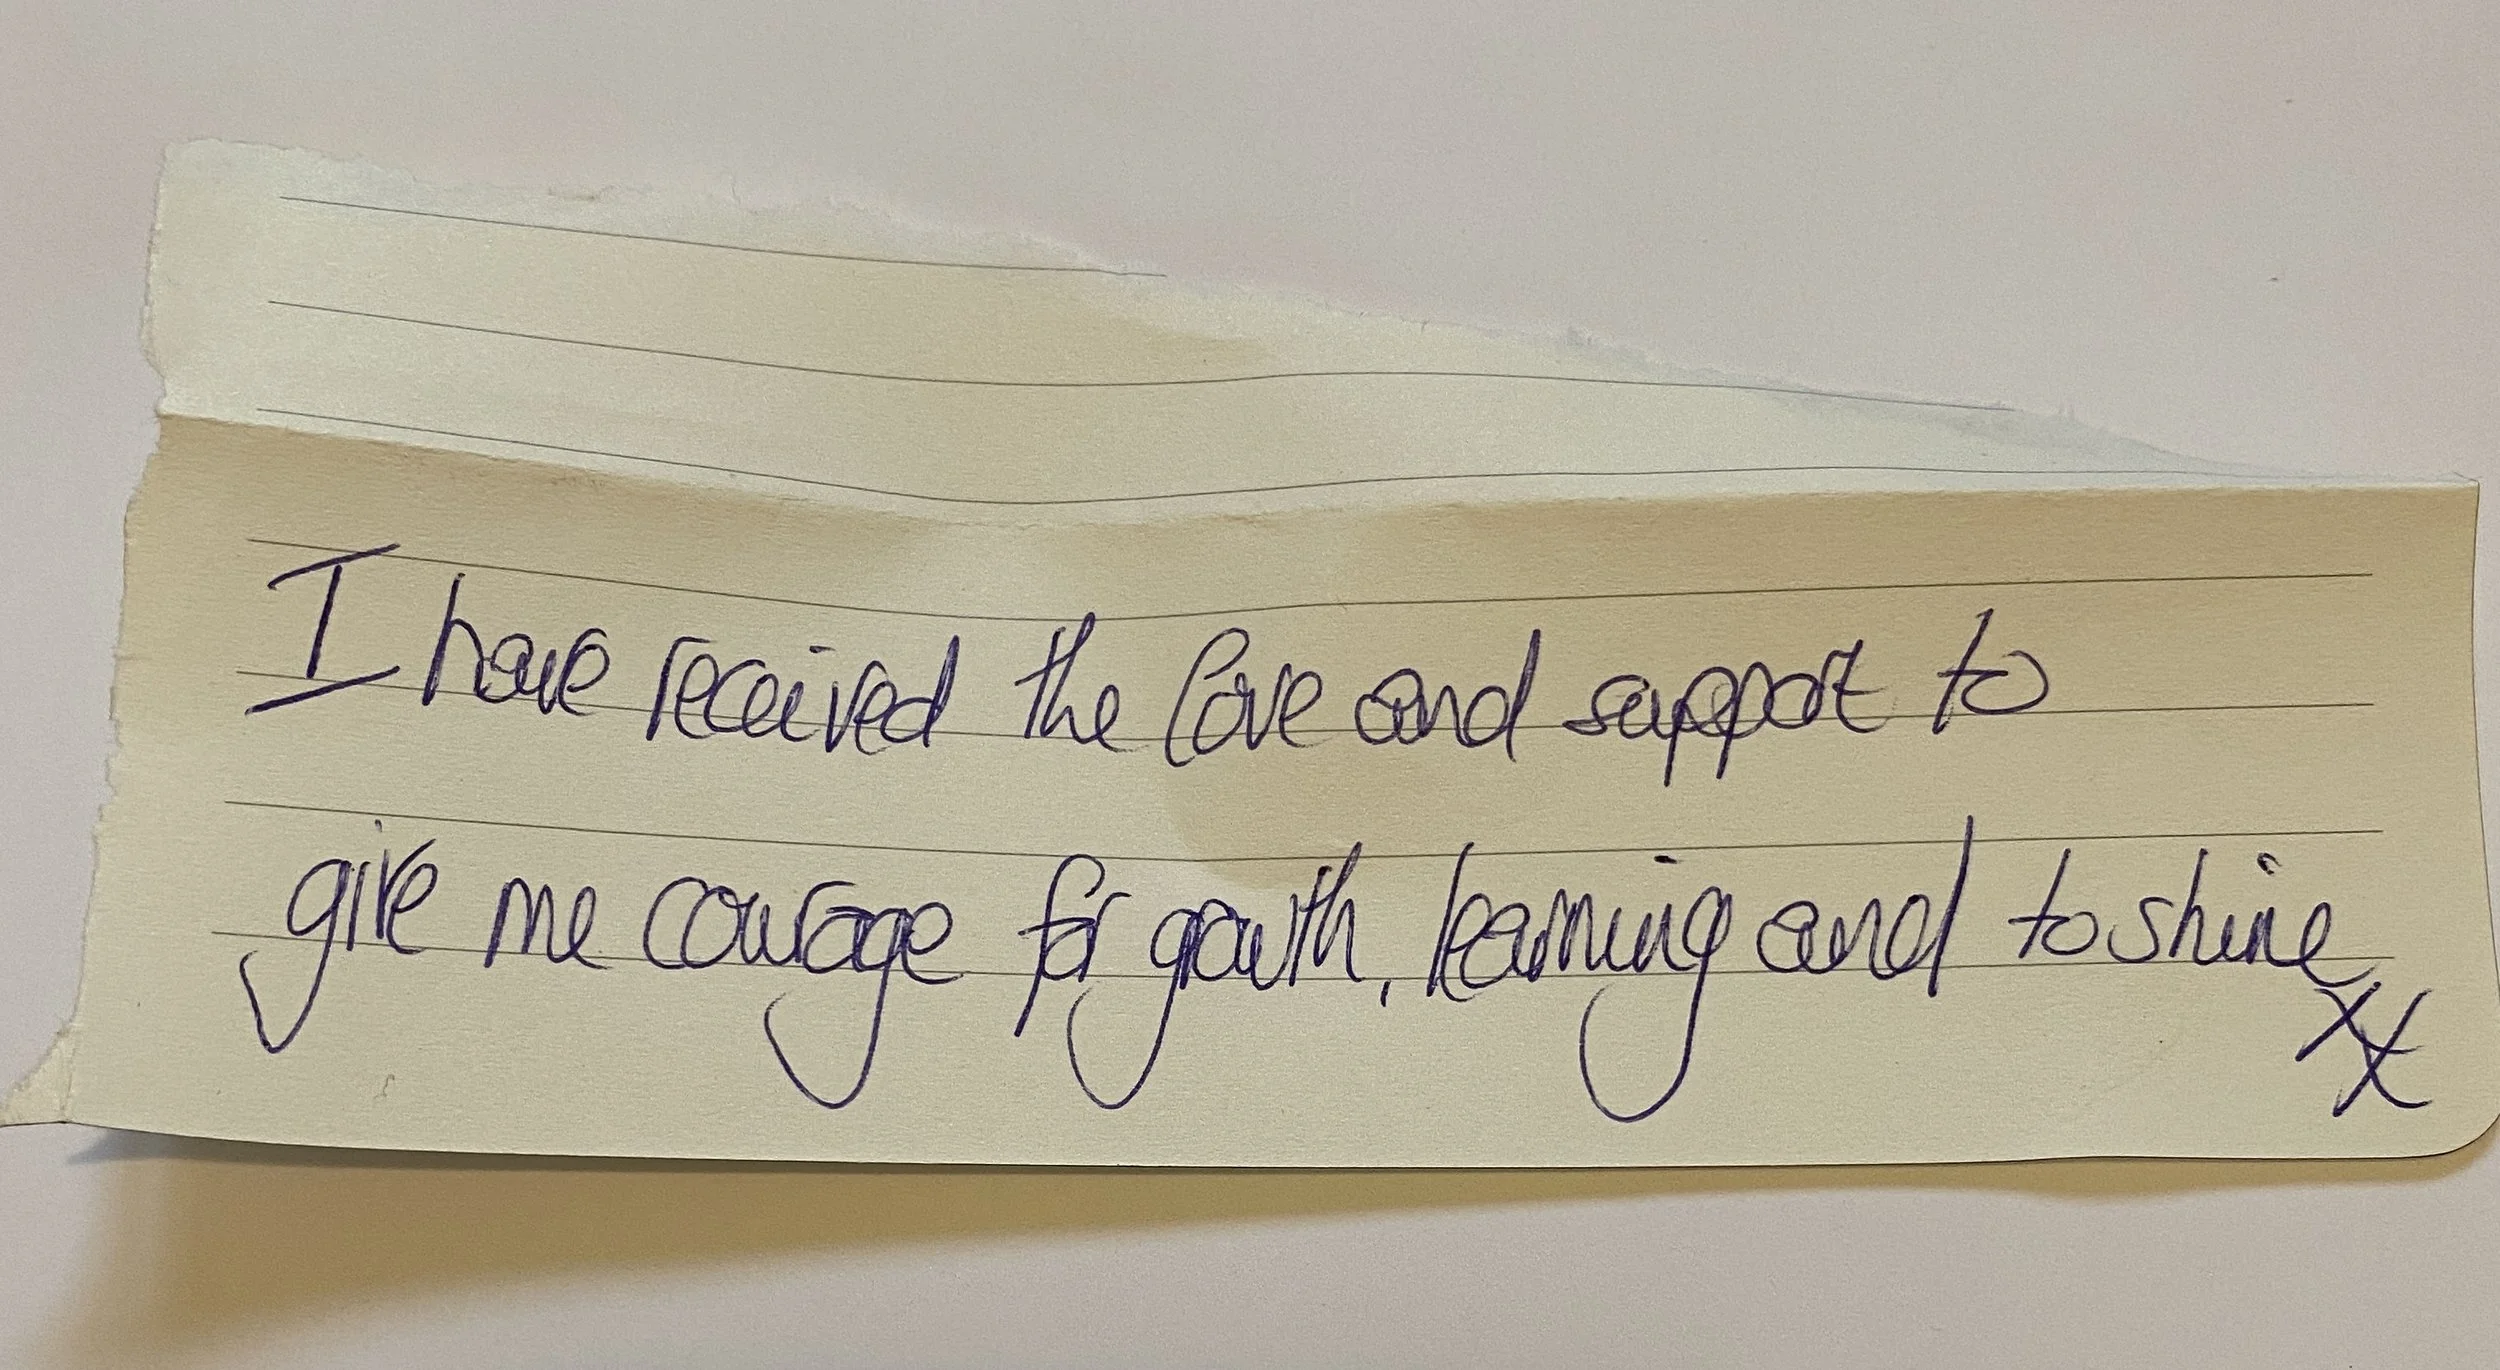 I have received the love and support to
give me courage for growth, learning and to shine
xx